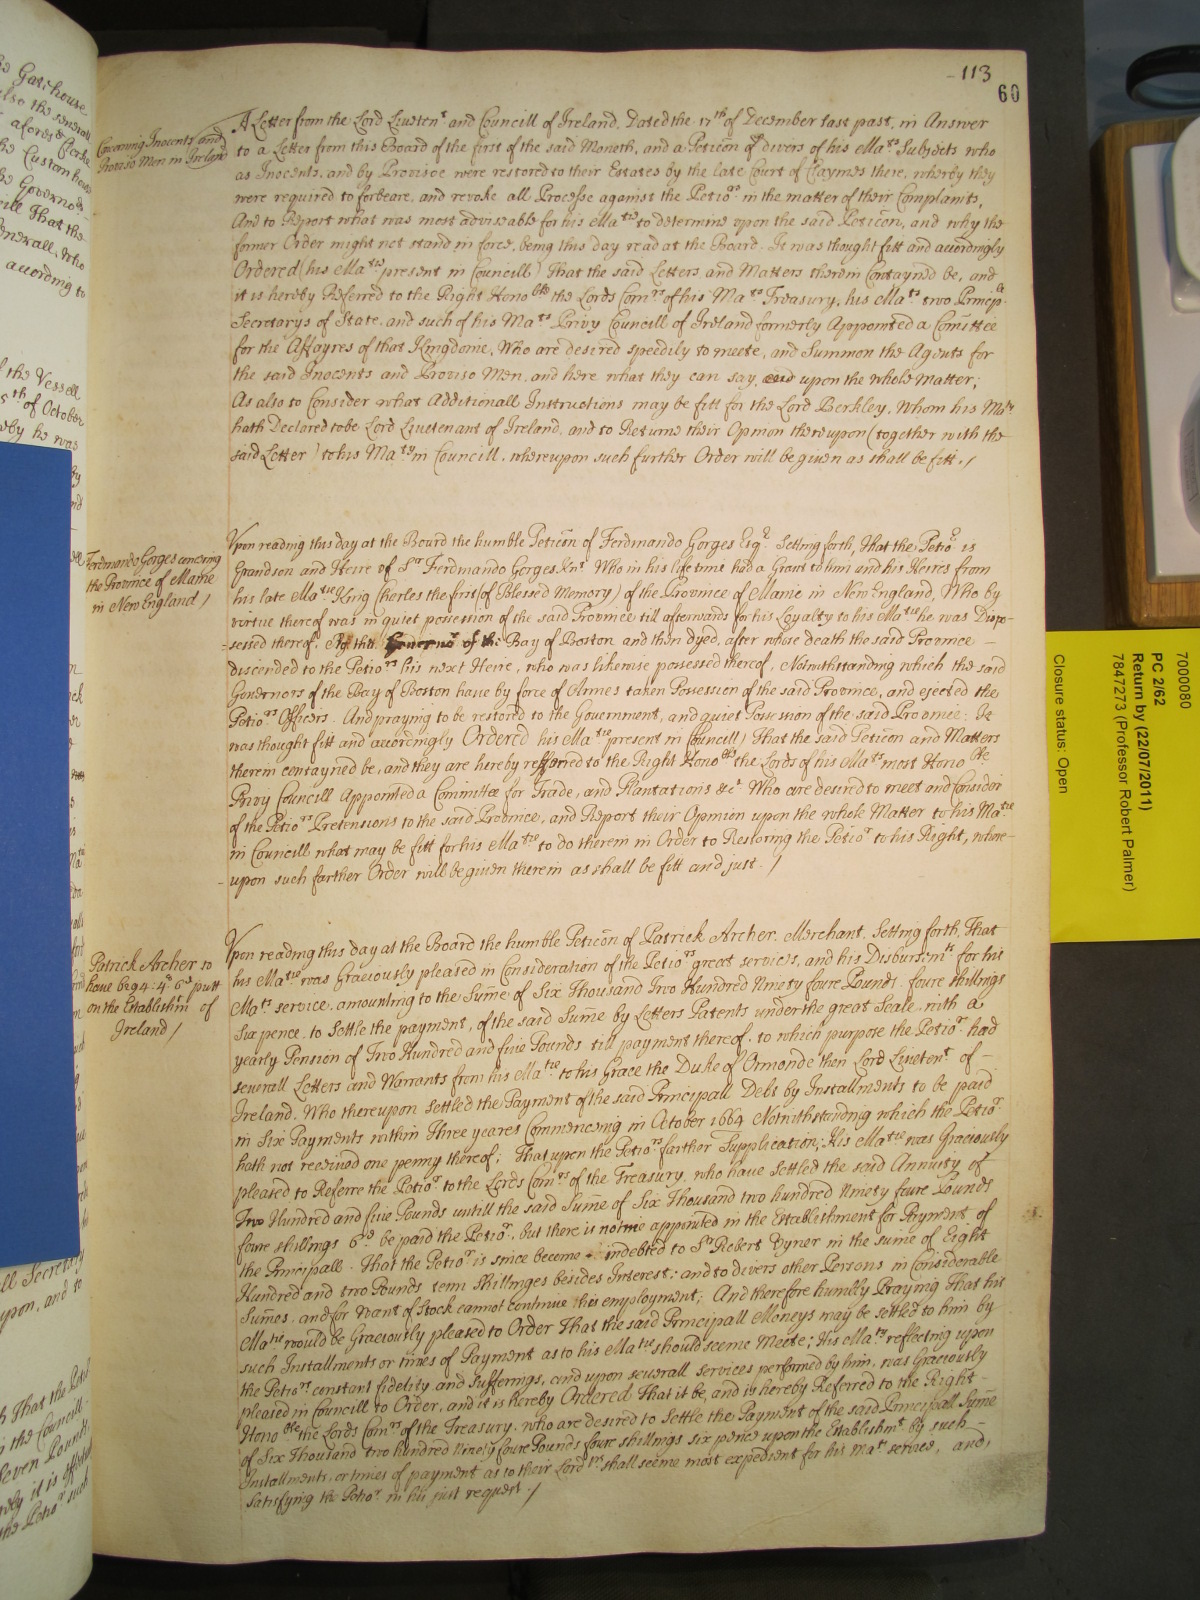 - 113
60
Concerning Inocents and
Proviso Men in Ireland
A Letter from the Lord Liueten.t and Councill of Ireland, Dated the 17th of December last past, in Answer
to a Letter from this Board of the first of the said Moneth, and a Peticon of divers of his Ma.ts Subjects who
as Inocents, and by Provisoe were restored to their Estates by the late Court of Claymes there, whereby they
were required to forbeare, and revoke all Processe against the Petio.rs in the matter of their Complaints,
And to Report what was most adviseable for his Ma.tie to determine upon the said Peticon, and why the
former Order might not stand in force, being this day read at the Board. It was thought fitt and accordingly
Ordered (his Ma.tie present in Councill) That the said Letters and Matters therein Contayned be, and
it is hereby Referred to the Right Hono.ble the Lords Com.rs of his Ma.ts Treasury, his Ma.ts two Princip.ll
Secretarys of State, and such of his Ma.ts Privy Councill of Ireland formerly Appointed a Comittee
for the Affayres of that Kingdome, Who are desired speedily to meete, and Summon the Agents for
the said Inocents and Proviso Men, and here what they can say, upon the whole Matter;
As also to Consider what Additionall Instructions may be fitt for the Lord Berkley, Whom his Ma.tie
hath Declared to be Lord Liuetenant of Ireland, and to Returne their Opinion thereupon (together with the
said Letter) to his Ma.tie in Councill, whereupon such further Order will be given as shall be fitt. /
Ferdinando Gorges concerning
the Province of Maine
in New England /
Vpon reading this day at the Board the humble Peticon of Ferdinando Gorges Esq.r Setting forth, That the Petio.r is
Grandson and Heire of S.r Ferdinando Gorges Kn.t Who in his life time had a Grant to him and his Heires from
his late Ma.tie King Charles the first (of Blessed Memory) of the Province of Maine in New England, Who by
virtue thereof was in quiet possession of the said Province till afterwards for his Loyalty to his Ma.tie he was Dispo-
-sessed thereof, By the Governo.r of the Bay of Boston and then dyed, after whose death the said Province
discended to the Petio.r his next Heire, who was likewise possessed thereof, Notwithstanding which the said
Governors of the Bay of Boston haue by force of Armes taken Possession of the said Province, and ejected the
Petio.rs Officers. And praying to be restored to the Government, and quiet Possession of the said Province; It
was thought fitt and accordingly Ordered his Ma.tie present in Councill) That the said Peticon and Matters
therein contayned be, and they are hereby refferred to the Right Hono.ble the Lords of his Ma.ts most Hono.ble
Privy Councill Appointed a Committee for Trade, and Plantations &c.a Who are desired to meet and Consider
of the Petio.rs Pretensions to the said Province, and Report their Opinion upon the whole Matter to his Ma.tie
in Councill what may be fitt for his Ma.tie to do therein in Order to Restoring the Petio.r to his Right, where-
-upon such farther Order will be given therein as shall be fitt and just. /
Patrick Archer to
haue 6294: 4s 6d putt
on the Establishm.t of
Ireland /
Vpon reading this day at the Board the humble Peticon of Patrick Archer Merchant, Setting forth, That
his Ma.tie was Graciously pleased in Consideration of the Petio.rs great services, and his Disbursem.ts for his
Ma.ts service, amounting to the Sume of Six Thousand Two Hundred Ninety foure Pounds foure shillings
Six pence, to Settle the payment, of the said Sume by Letters Patents under the great Seale with a
yearly Pension of Two Hundred and five Pounds till payment thereof, to which purpose the Petio.r had
severall Letters and Warrants from his Ma.tie to his Grace the Duke of Ormonde then Lord Liueten.t of
Ireland, Who thereupon settled the Payment of the said Principall Debt by Installments to be paid
in Six Payments within Three yeares Commencing in October 1664 Notwithstanding which the Petio.r
hath not received one penny thereof; That upon the Petio.rs farther Supplication, His Ma.tie was Graciously
pleased to Referre the Petio.r to the Lords Com.rs of the Treasury, who have settled the said Annuity of
Two Hundred and five Pounds untill the said Sume of Six Thousand two hundred Ninety foure Pounds
foure shillings 6d be paid the Petio.r, but there is not appointed in the Establishment for Payment of
the Principall. That the Petio.r is since become indebted to S.r Robert Vyner in the sume of Eight
Hundred and two Pounds tenn shillinges besides Interest; and to divers other Persons in Considerable
Sumes, and for want of Stock cannot continue his employment; And therefore humbly Praying That his
Ma.tie would be Graciously pleased to Order That the said Principall Moneys may be settled to him by
such Installments or times of Payment as to his Ma.tie should seeme Meete; His Ma.tie reflecting upon
the Petio.rs constant fidelity and sufferings, and upon severall services performed by him, was Graciously
pleased in Councill to Order, and it is hereby Ordered That it be, and is hereby Referred to the Right
Hono.ble the Lords Com.rs of the Treasury, who are desired to Settle the Payment of the said Principall Sume
of Six Thousand two hundred Ninety foure Pounds foure shillings six pence upon the Establishm.t by such
Installments, or times of payment as to their Lord.ps shall seeme most expedient for his Ma.ts service, and
Satisfying the Petio.r in his just request. /
7000080
PC 2/62
Return by (22/07/2011)
7847273 (Professor Robert Palmer)
Closure status: Open